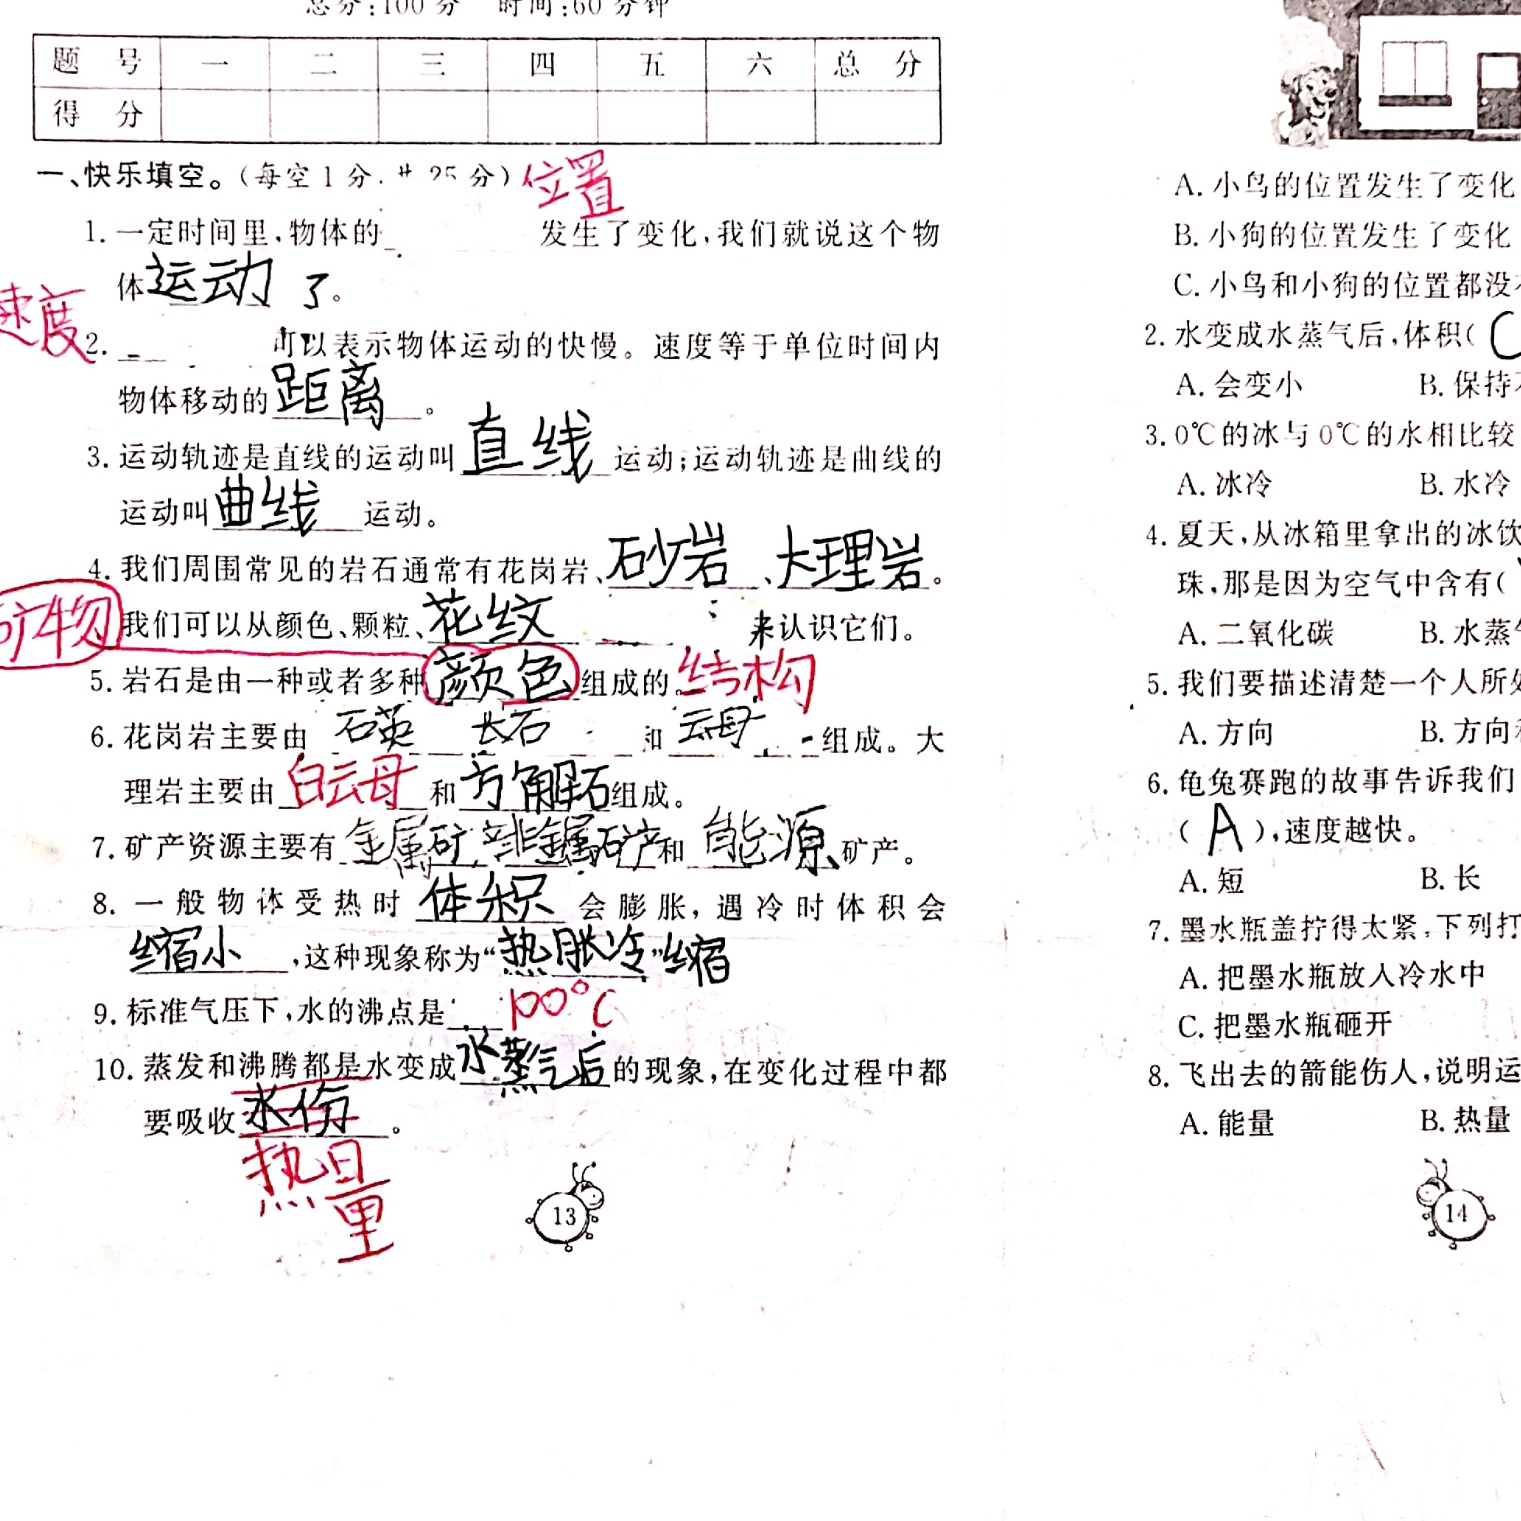 总分:100分 时间:60分钟
题 号 一 二 三 四 五 六 总 分
得 分
一、快乐填空。(每空1分,共25分) 位置
1. 一定时间里,物体的 发生了变化,我们就说这个物
体运动了。
速度
2. 可以表示物体运动的快慢。速度等于单位时间内
物体移动的距离。
3. 运动轨迹是直线的运动叫直线运动;运动轨迹是曲线的
运动叫曲线运动。
4. 我们周围常见的岩石通常有花岗岩、砂岩、大理岩。
矿物 我们可以从颜色、颗粒、花纹 来认识它们。
5. 岩石是由一种或者多种颜色组成的。结构
6. 花岗岩主要由 石英 长石 和云母组成。大
理岩主要由白云母和方解石组成。
7. 矿产资源主要有金属矿、非金属矿产和能源矿产。
8. 一般物体受热时体积会膨胀,遇冷时体积会
缩小,这种现象称为“热胀冷”缩
9. 标准气压下,水的沸点是 100°C
10. 蒸发和沸腾都是水变成水蒸气后的现象,在变化过程中都
要吸收水份。
热量
13
A. 小鸟的位置发生了变化
B. 小狗的位置发生了变化
C. 小鸟和小狗的位置都没
2. 水变成水蒸气后,体积( C
A. 会变小 B. 保持
3. 0℃的冰与0℃的水相比较
A. 冰冷 B. 水冷
4. 夏天,从冰箱里拿出的冰饮
珠,那是因为空气中含有(
A. 二氧化碳 B. 水蒸
5. 我们要描述清楚一个人所
A. 方向 B. 方向
6. 龟兔赛跑的故事告诉我们
( A ),速度越快。
A. 短 B. 长
7. 墨水瓶盖拧得太紧,下列打
A. 把墨水瓶放入冷水中
C. 把墨水瓶砸开
8. 飞出去的箭能伤人,说明运
A. 能量 B. 热量
14